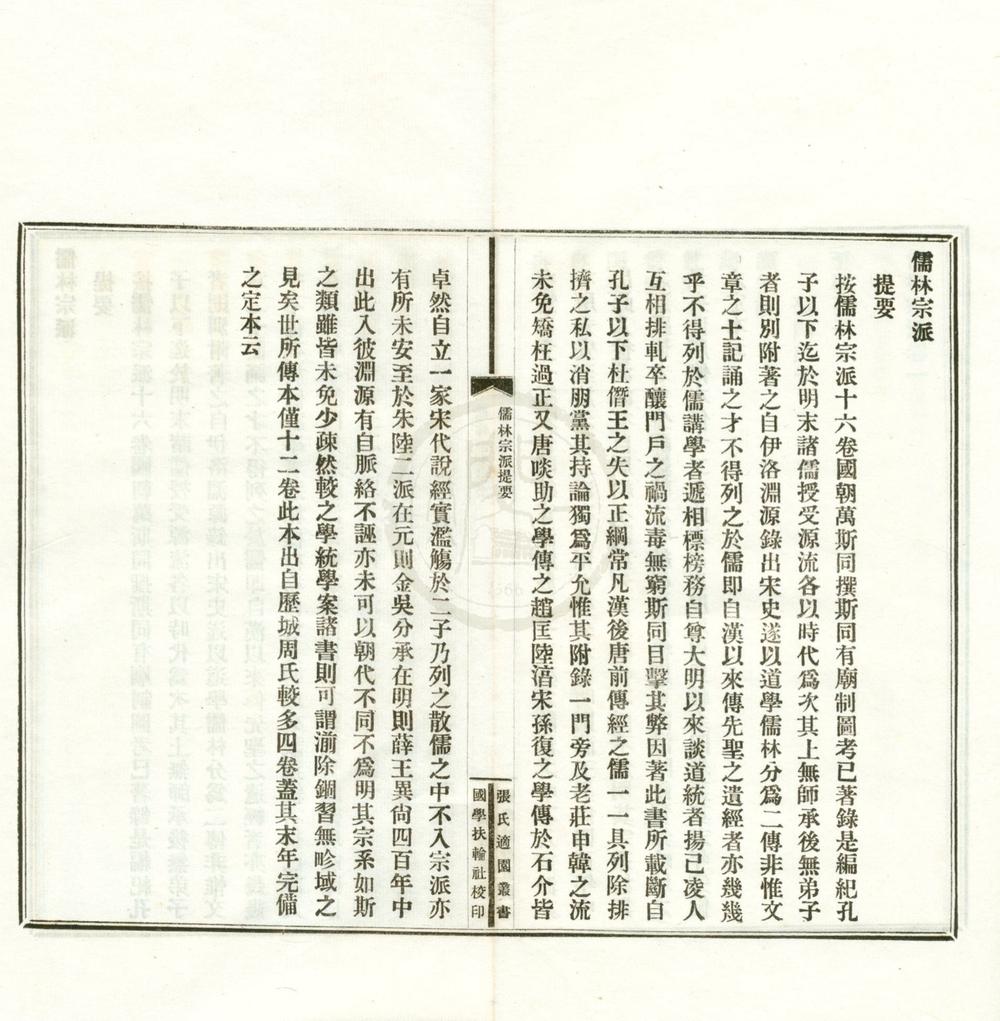 儒林宗派
提要
按儒林宗派十六卷國朝萬斯同撰斯同有廟制圖考已著錄是編紀孔
子以下迄於明末諸儒授受源流各以時代爲次其上無師承後無弟子
者則別附著之自伊洛淵源錄出宋史遂以道學儒林分爲二傳非惟文
章之士記誦之才不得列之於儒即自漢以來傳先聖之遺經者亦幾幾
乎不得列於儒講學者遞相標榜務自尊大明以來談道統者揚己凌人
互相排軋卒釀門戶之禍流毒無窮斯同目擊其弊因著此書所載斷自
孔子以下杜僭王之失以正綱常凡漢後唐前傳經之儒一一具列除排
擠之私以消朋黨其持論獨爲平允惟其附錄一門旁及老莊申韓之流
未免矯枉過正又唐啖助之學傳之趙匡陸淳宋孫復之學傳於石介皆
儒林宗派提要
張氏適園叢書
國學扶輪社校印
卓然自立一家宋代說經實濫觴於二子乃列之散儒之中不入宗派亦
有所未安至於朱陸二派在元則金吳分承在明則薛王異尙四百年中
出此入彼淵源有自脈絡不誣亦未可以朝代不同不爲明其宗系如斯
之類雖皆未免少疎然較之學統學案諸書則可謂湔除錮習無畛域之
見矣世所傳本僅十二卷此本出自歷城周氏較多四卷蓋其末年完備
之定本云
1566